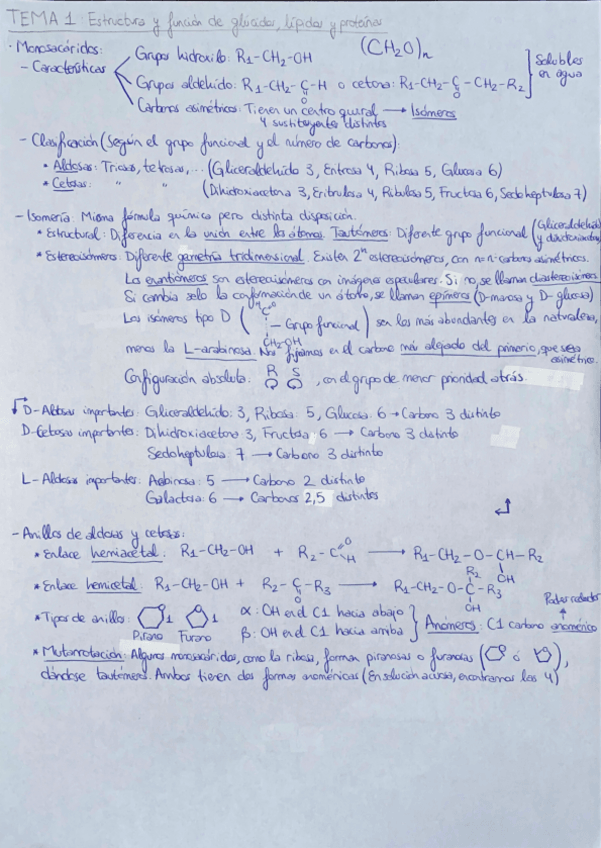 TEMA 1: Estructura y función de glúcidos, lípidos y proteínas
· Monosacáridos:
- Características
Grupo hidroxilo: R1-CH2-OH (CH2O)n
Grupo aldehído: R1-CH2-C-H o cetona: R1-CH2-C-CH2-R2
O O
Solubles en agua
Carbonos asimétricos: Tienen un centro quiral → Isómeros
4 sustituyentes distintos
- Clasificación (según el grupo funcional y el número de carbonos):
* Aldosas: Triosas, tetrosas, ... (Gliceraldehído 3, Eritrosa 4, Ribosa 5, Glucosa 6)
* Cetosas: " " (Dihidroxiacetona 3, Eritrulosa 4, Ribulosa 5, Fructosa 6, Sedoheptulosa 7)
- Isomería: Misma fórmula química pero distinta disposición.
* Estructural: Diferencia en la unión entre los átomos. Tautómeros: Diferente grupo funcional (Gliceraldehído y dihidroxiacetona)
* Estereoisómeros: Diferente geometría tridimensional. Existen 2ⁿ estereoisómeros, con n = nº carbonos asimétricos.
Los enantiómeros son estereoisómeros con imágenes especulares. Si no, se llaman diastereoisómeros
Si cambia solo la conformación de un átomo, se llaman epímeros (D-manosa y D-glucosa)
Los isómeros tipo D ( - Grupo funcional) son los más abundantes en la naturaleza,
CH2OH
menos la L-arabinosa. Nos fijamos en el carbono más alejado del primario, que sea asimétrico.
Configuración absoluta: R S , con el grupo de menor prioridad atrás.
D-Aldosas importantes: Gliceraldehído: 3, Ribosa: 5, Glucosa: 6 → Carbono 3 distinto
D-Cetosas importantes: Dihidroxiacetona 3, Fructosa 6 → Carbono 3 distinto
Sedoheptulosa 7 → Carbono 3 distinto
L-Aldosas importantes: Arabinosa: 5 → Carbono 2 distinto
Galactosa: 6 → Carbonos 2,5 distintos
- Anillos de aldosas y cetosas:
* Enlace hemiacetal: R1-CH2-OH + R2-C O H → R1-CH2-O-CH-R2
OH
* Enlace hemicetal: R1-CH2-OH + R2-C-R3 → R1-CH2-O-C-R3
O R2 OH
Poder reductor
* Tipos de anillo: 1 1 α: OH en el C1 hacia abajo
Pirano Furano β: OH en el C1 hacia arriba
Anómeros: C1 carbono anomérico
* Mutarrotación: Algunos monosacáridos, como la ribosa, forman piranosas o furanosas ( ó ),
dándose tautómeros. Ambos tienen dos formas anoméricas (En solución acuosa, encontramos las 4)